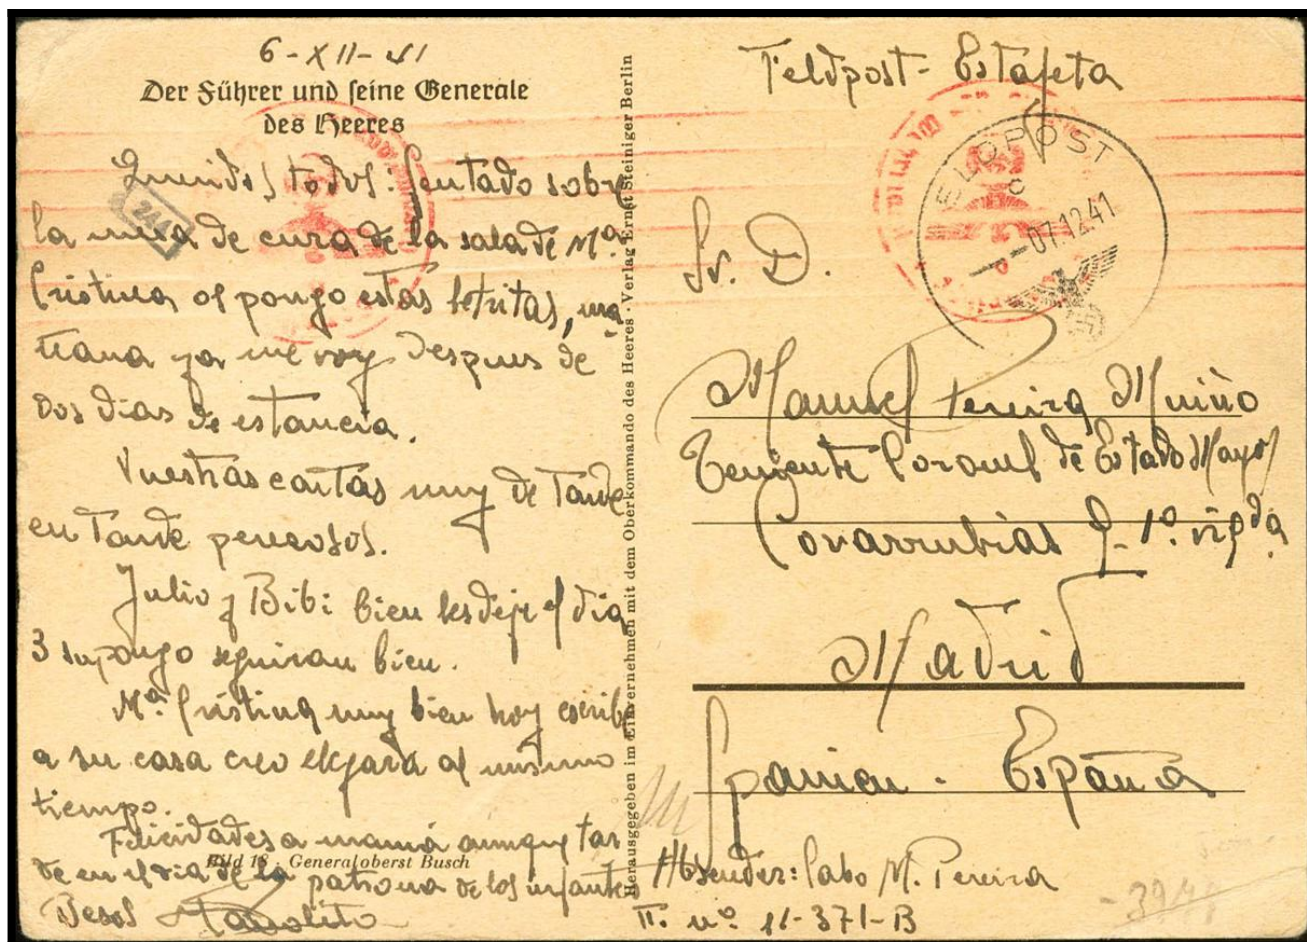 6-XII-41
Der Führer und seine Generale
des Heeres
Queridos todos: Sentado sobre
la mesa de cura de la sala de Mª
Cristina os pongo estas letritas, ma
ñana ya me voy despues de
dos dias de estancia.
Vuestras cartas muy de tarde
en tarde perezosos.
Julio y Bibi bien les deje el dia
3 supongo seguiran bien.
Mª Cristina muy bien hoy escribe
a su casa creo llegará al mismo
tiempo.
Felicidades a mamá aunque tar
de en el dia de la patrona de los infantes
Bild 18 · Generaloberst Busch
Besos
Herausgegeben im Einvernehmen mit dem Oberkommando des Heeres · Verlag Ernst Steiniger Berlin
Feldpost - Estafeta
FELDPOST
c
-07.12.41
Sr. D.
Manuel Pereira Muiño
Teniente Coronel de Estado Mayor
Covarrubias 9-1º
Madrid
Spanien - España
Absender: Cabo M. Pereira
nº 11-371-B
244